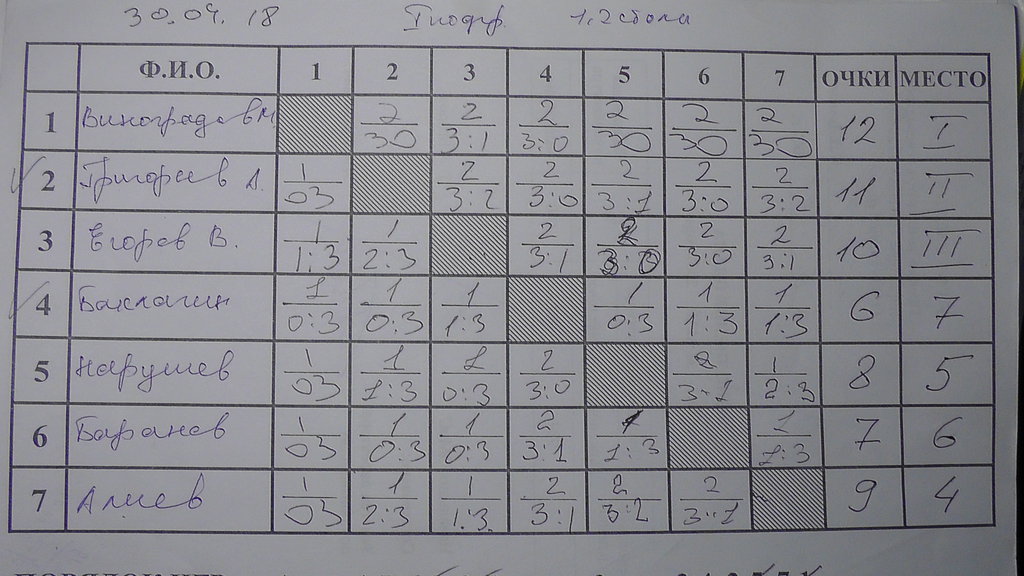 30.04.18 1.2 стола
Ф.И.О. 1 2 3 4 5 6 7 ОЧКИ МЕСТО
1 Виноградов М 2/30 2/3:1 2/3:0 2/30 2/30 2/30 12 I
2 Григорьев А. 1/03 2/3:2 2/3:0 2/3:1 2/3:0 2/3:2 11 II
3 Егоров В. 1/1:3 1/2:3 2/3:1 2/3:0 2/3:0 2/3:1 10 III
4 Баклагин 1/0:3 1/0:3 1/1:3 1/0:3 1/1:3 1/1:3 6 7
5 Нарушев 1/03 1/1:3 1/0:3 2/3:0 2/3:1 1/2:3 8 5
6 Баранов 1/03 1/0:3 1/0:3 2/3:1 1/1:3 1/1:3 7 6
7 Алиев 1/03 1/2:3 1/1:3 2/3:1 2/3:2 2/3:1 9 4